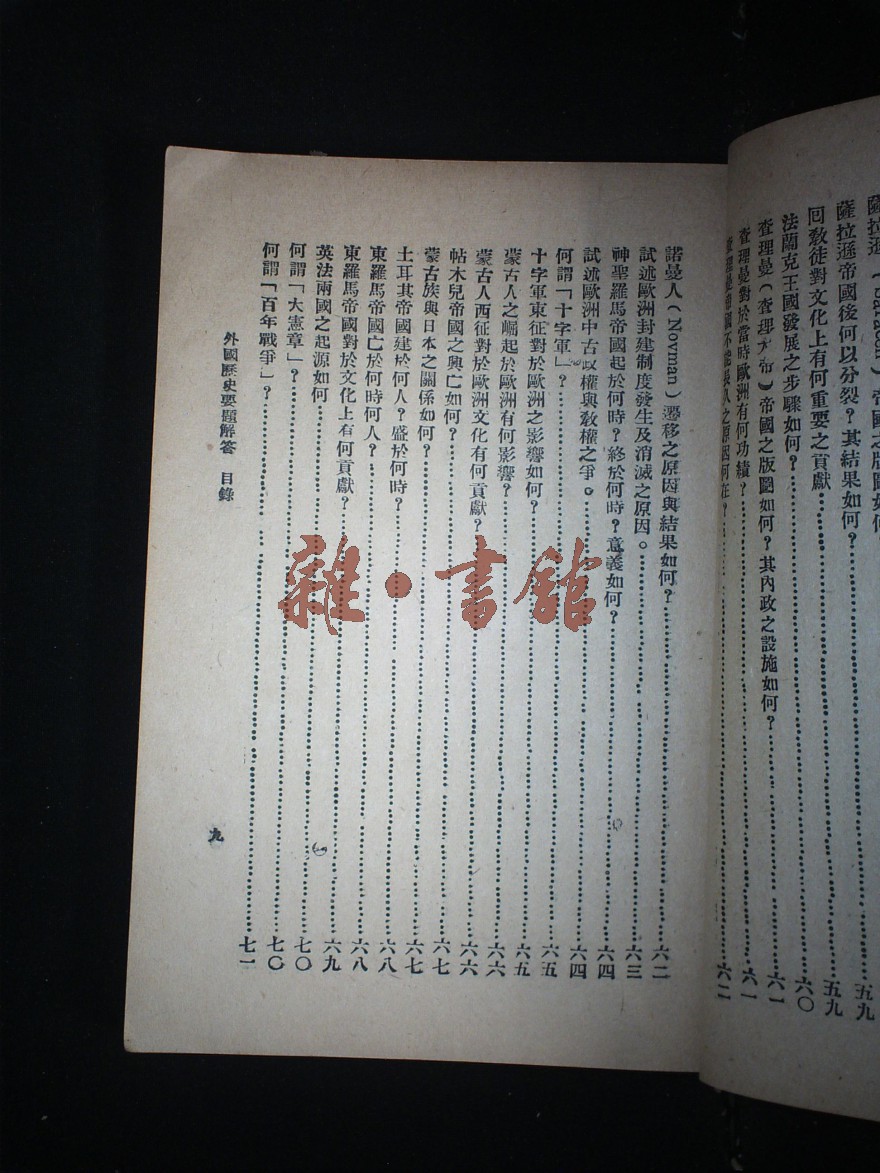 薩拉遜（Saracen）帝國之版圖如何
薩拉遜帝國後何以分裂？其結果如何？……五九
回教徒對文化上有何重要之貢獻……五九
法蘭克王國發展之步驟如何？……六〇
查理曼（查理大帝）帝國之版圖如何？其內政之設施如何？……六一
查理曼對於當時歐洲有何功績？……六一
查理曼帝國不能長久之原因何在？……六二
諾曼人（Novman）遷移之原因與結果如何？……六二
試述歐洲封建制度發生及消滅之原因。……六三
神聖羅馬帝國起於何時？終於何時？意義如何？……六四
試述歐洲中古政權與敎權之爭。……六四
何謂「十字軍」？……六五
十字軍東征對於歐洲之影響如何？……六五
蒙古人之崛起於歐洲有何影響？……六六
蒙古人西征對於歐洲文化有何貢獻？……六六
帖木兒帝國之興亡如何？……六七
蒙古族與日本之關係如何？……六七
土耳其帝國建於何人？盛於何時？……六八
東羅馬帝國亡於何時何人？……六八
東羅馬帝國對於文化上有何貢獻？……六九
英法兩國之起源如何……七〇
何謂「大憲章」？……七〇
何謂「百年戰爭」？……七一
外國歷史要題解答　目錄
九
雜·書館